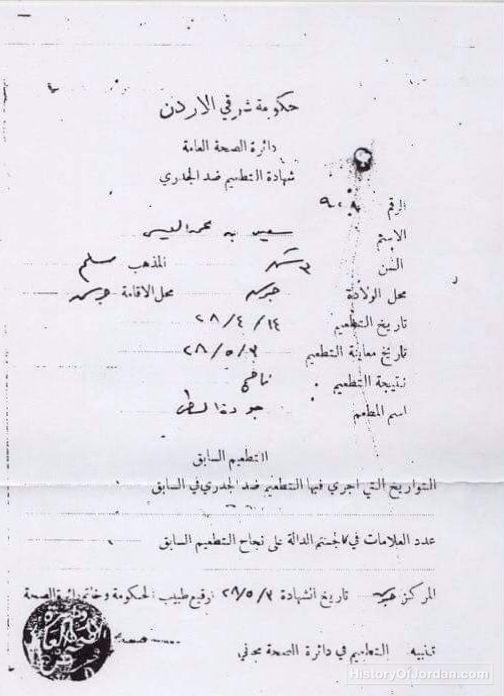 حكومة شرقي الاردن
دائرة الصحة العامة
شهادة التطعيم ضد الجدري
الرقم
الاسم سعيد بن محمد
السن ٣ المذهب مسلم
محل الولادة جرش محل الاقامة جرش
تاريخ التطعيم ٢٨/٤/١٤
تاريخ معاينة التطعيم ٢٨/٥/٣
نتيجة التطعيم ناجح
اسم المطعم جودة
التطعيم السابق
التواريخ التي اجري فيها التطعيم ضد الجدري في السابق
عدد العلامات في الجسم الدالة على نجاح التطعيم السابق
المركز جرش تاريخ الشهادة ٢٨/٥/٣ توقيع طبيب الحكومة وختم دائرة الصحة
تنبيه التطعيم في دائرة الصحة مجاني
HistoryOfJordan.com